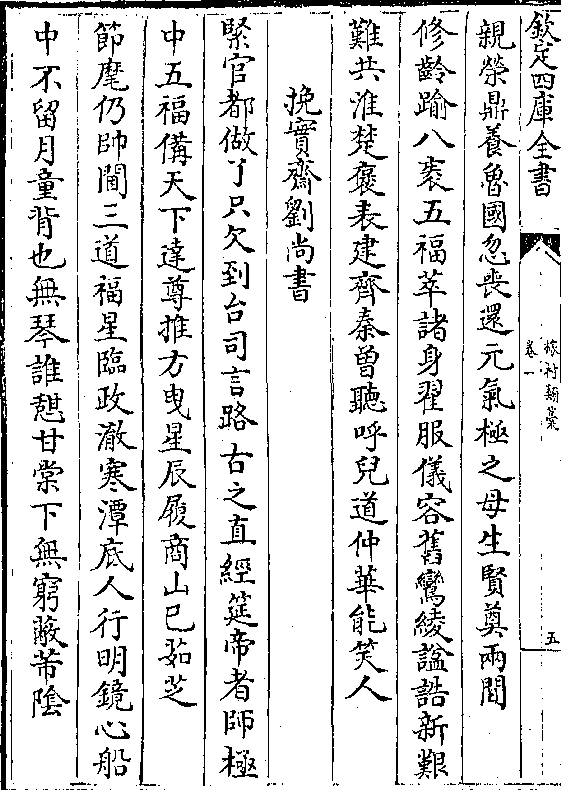 欽定四庫全書
梅村類藁
卷一
五
親榮鼎養魯國忽喪還元氣極之母生賢奠兩間
修齡踰八袠五福萃諸身翟服儀容舊鸞綾諡誥新艱
難共淮楚褒表建齊秦曾聽呼兒道仲華能笑人
挽實齋劉尚書
緊官都做了只欠到台司言路古之直經筵帝者師極
中五福備天下達尊推方曳星辰履商山已茹芝
節麾仍帥閫三道福星臨政澈寒潭底人行明鏡心船
中不留月童背也無琴誰憩甘棠下無窮蔽芾陰